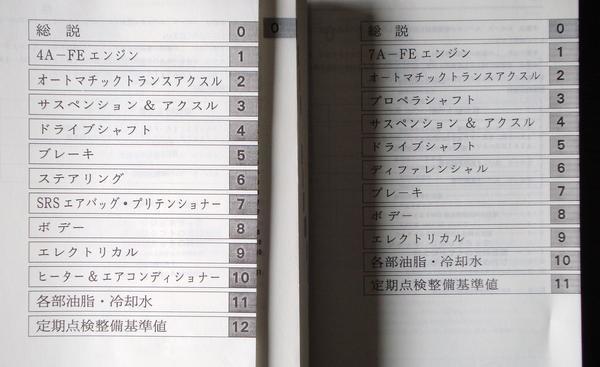 総 説 0
4A－FEエンジン 1
オートマチックトランスアクスル 2
サスペンション & アクスル 3
ドライブシャフト 4
ブレーキ 5
ステアリング 6
SRSエアバッグ・プリテンショナー 7
ボデー 8
エレクトリカル 9
ヒーター&エアコンディショナー 10
各部油脂・冷却水 11
定期点検整備基準値 12
0
総 説 0
7A－FEエンジン 1
オートマチックトランスアクスル 2
プロペラシャフト 3
サスペンション & アクスル 4
ドライブシャフト 5
ディファレンシャル 6
ブレーキ 7
ボデー 8
エレクトリカル 9
各部油脂・冷却水 10
定期点検整備基準値 11